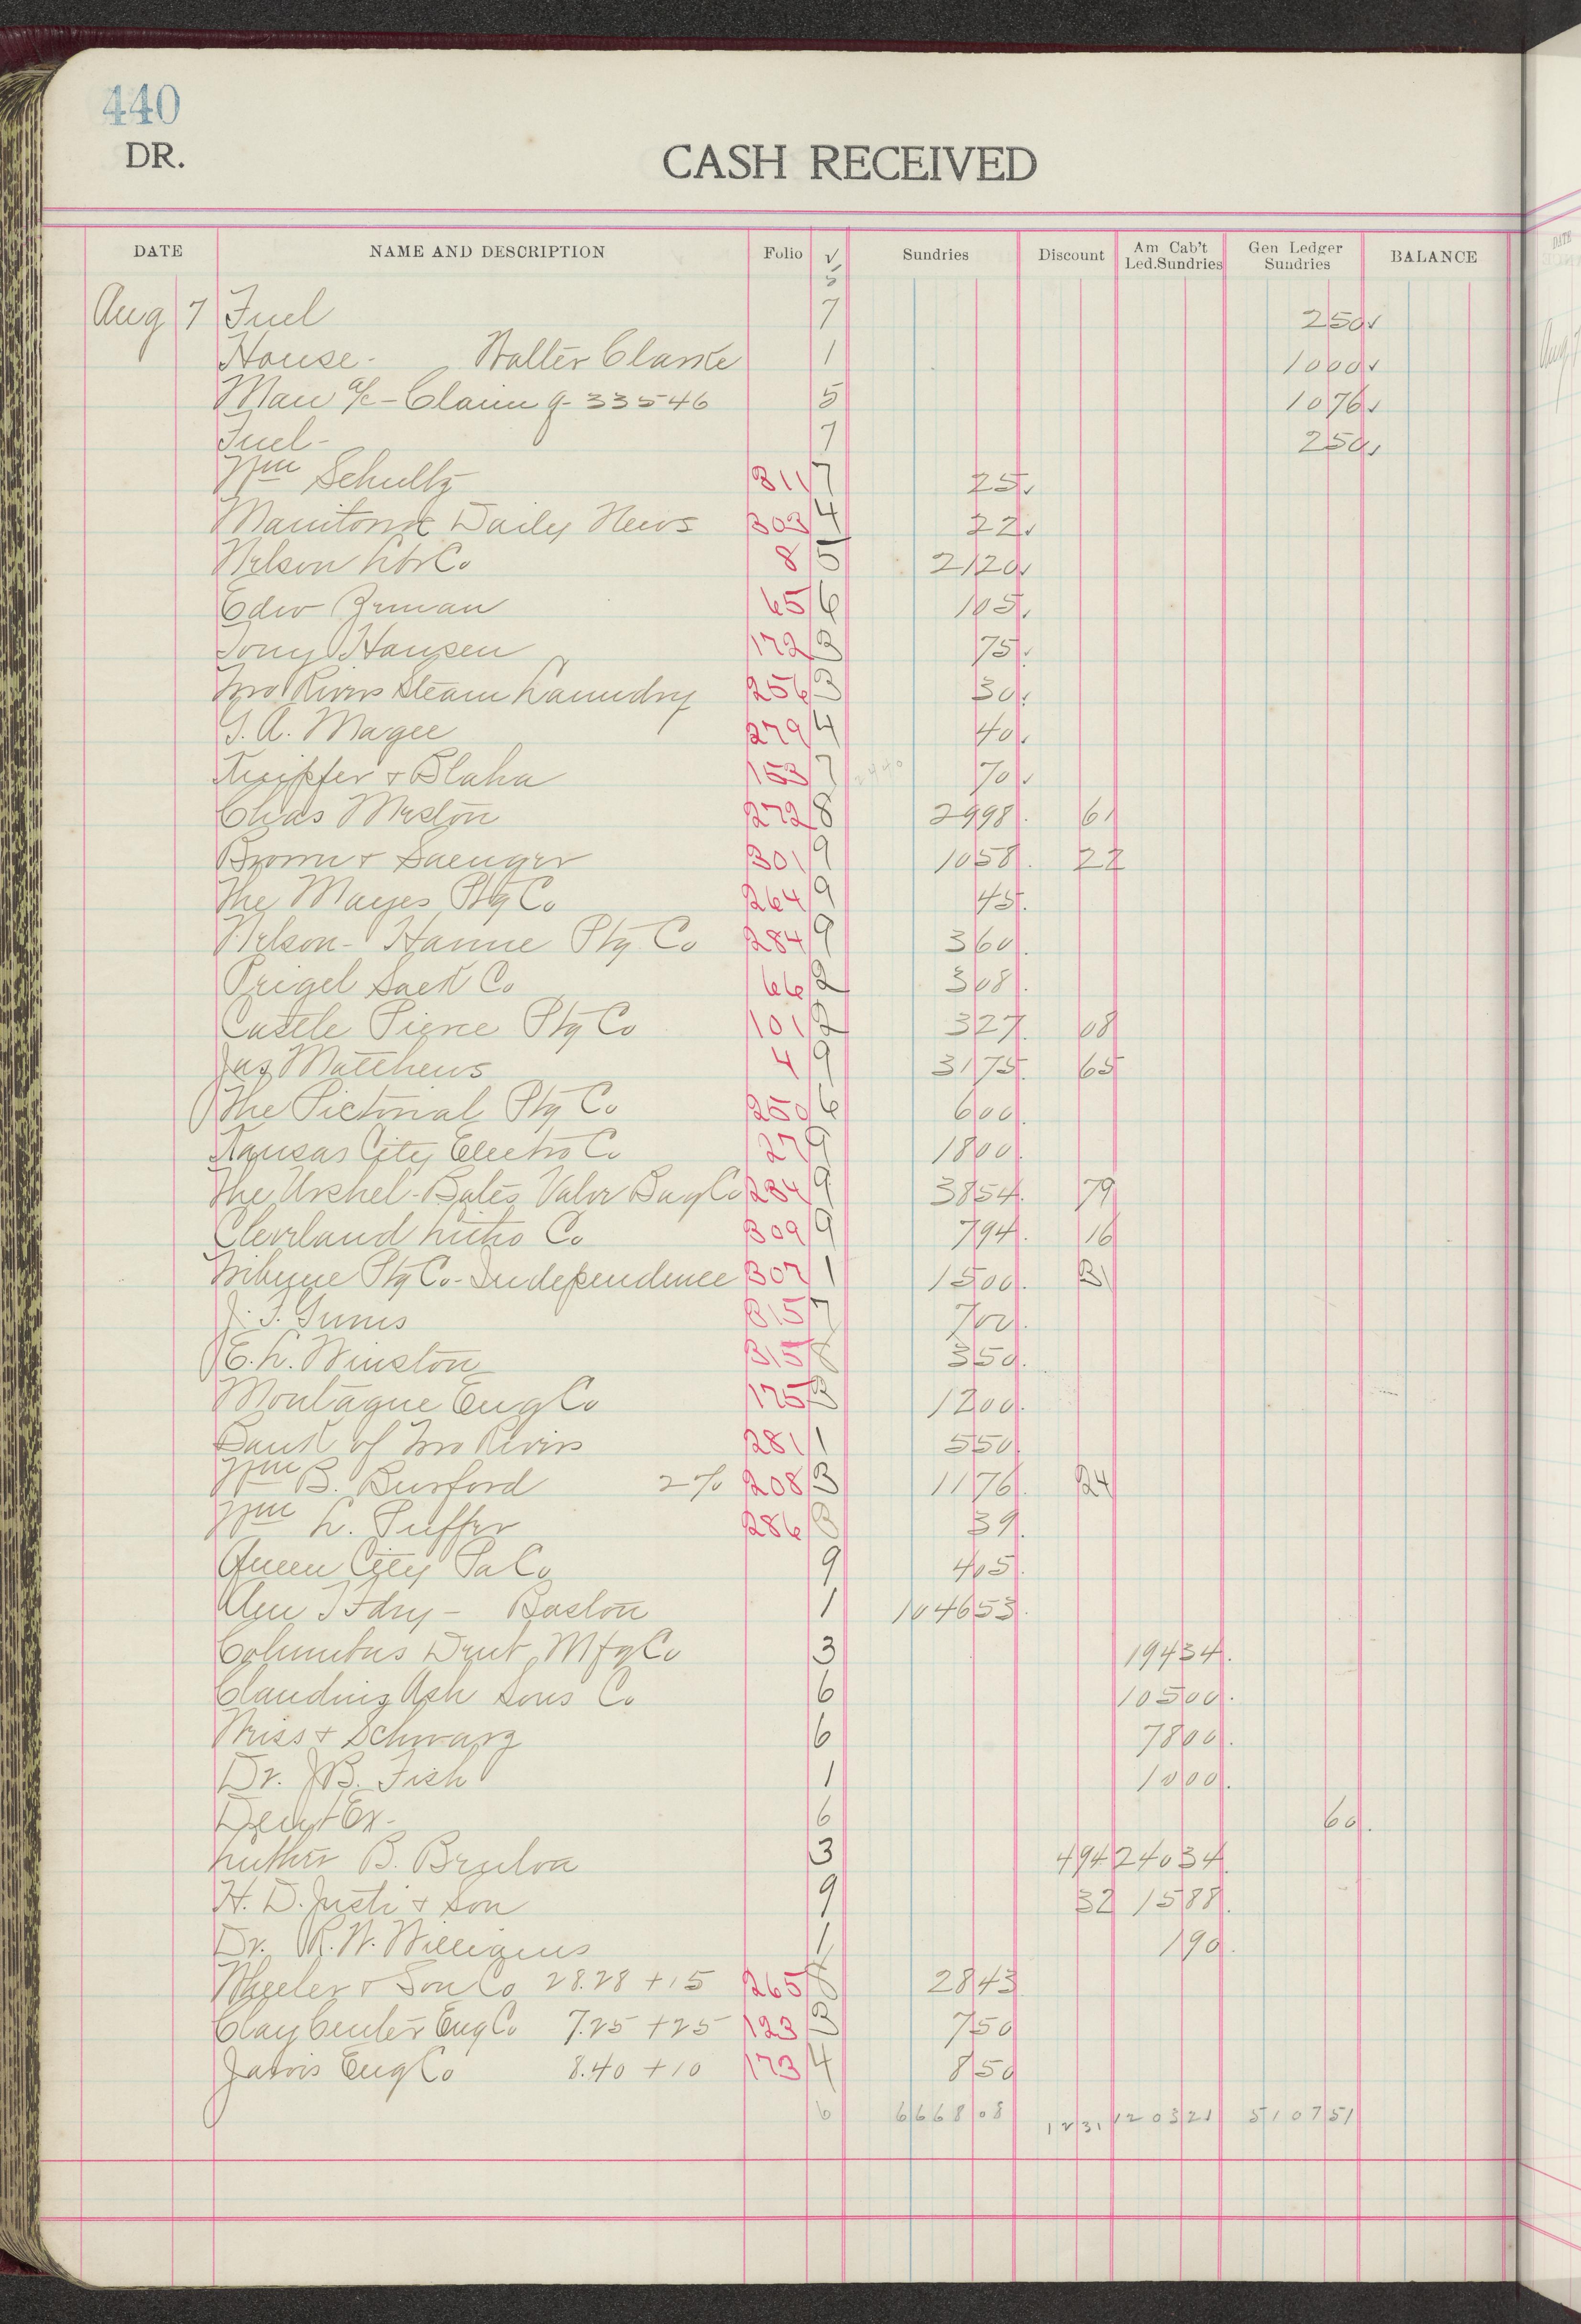 440
DR.
CASH RECEIVED
DATE NAME AND DESCRIPTION Folio √ Sundries Discount Am Cab't Led.Sundries Gen Ledger Sundries BALANCE
5
Aug 7 Fuel 7 250√
House - Walter Clarke 1 1000√
Man a/c - Claim g- 33546 5 1076√
Fuel - 7 250√
Wm Schultz 311 7 25√
Manitowoc Daily News 303 4 22√
Nelson Litho Co 8 5 2120√
Edw Zeman 65 6 105√
Tony Hansen 172 3 75√
Two Rivers Steam Laundry 256 3 30√
G. A. Magee 279 4 40√
Kuipfer & Blaha 153 7 70√
Chas Weston 272 8 2998. 61
Brown & Saenger 301 9 1058. 22
The Mayes Ptg Co 264 9 45.
Nelson - Hanne Ptg Co 284 9 360.
Prigel Sack Co 66 2 308.
Castle Pierce Ptg Co 101 2 327. 08
Jas Matthews 4 9 3175. 65
The Pictorial Ptg Co 250 6 600.
Kansas City Electro Co 27 9 1800.
The Urschel-Bates Valve Bag Co 234 9 3854. 79
Cleveland Litho Co 309 9 794. 16
Tribune Ptg Co - Independence 307 1 1500. 31
J. T. 315 7 700.
E. L. Winston 315 8 350.
Montague Eng Co 175 3 1200.
Bank of Two Rivers 281 1 550.
Wm B. Burford 2% 208 3 1176. 24
Wm L. Puffer 286 3 39.
Queen City Pa Co 9 405.
Am T Fdry - Boston 1 104653.
Columbus Dent Mfg Co 3 19434.
Claudius Ash Sons Co 6 10500.
Weiss & Schwarz 6 7800.
Dr. J B. Fish 1 1000.
Dent Ex - 6 60.
Luther B. 3 494 24034.
H. D. Justi & Son 9 32 1588.
Dr. R. W. Williams 1 190.
Wheeler & Son Co 28.28 + 15 265 8 2843
Clay Center Eng Co 7.25 + 25 123 3 750
Jarvis Eng Co 8.40 + 10 173 4 850
6 666808 1231 120321 510751